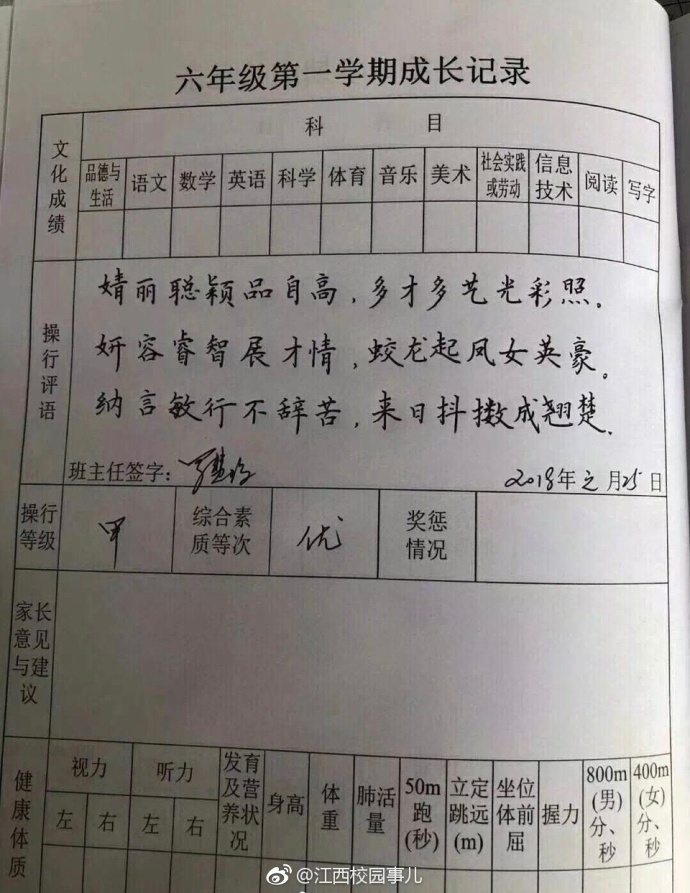 六年级第一学期成长记录
文化成绩
科 目
品德与生活 语文 数学 英语 科学 体育 音乐 美术 社会实践或劳动 信息技术 阅读 写字
操行评语
婧丽聪颖品自高，多才多艺光彩照。
妍容睿智展才情，蛟龙起凤女英豪。
纳言敏行不辞苦，来日抖擞成翘楚。
班主任签字： 2018年元月25日
操行等级 甲 综合素质等次 优 奖惩情况
家长意见与建议
健康体质
视力 听力 发育及营养状况 身高 体重 肺活量 50m跑(秒) 立定跳远(m) 坐位体前屈 握力 800m(男)分、秒 400m(女)分、秒
左 右 左 右
@江西校园事儿